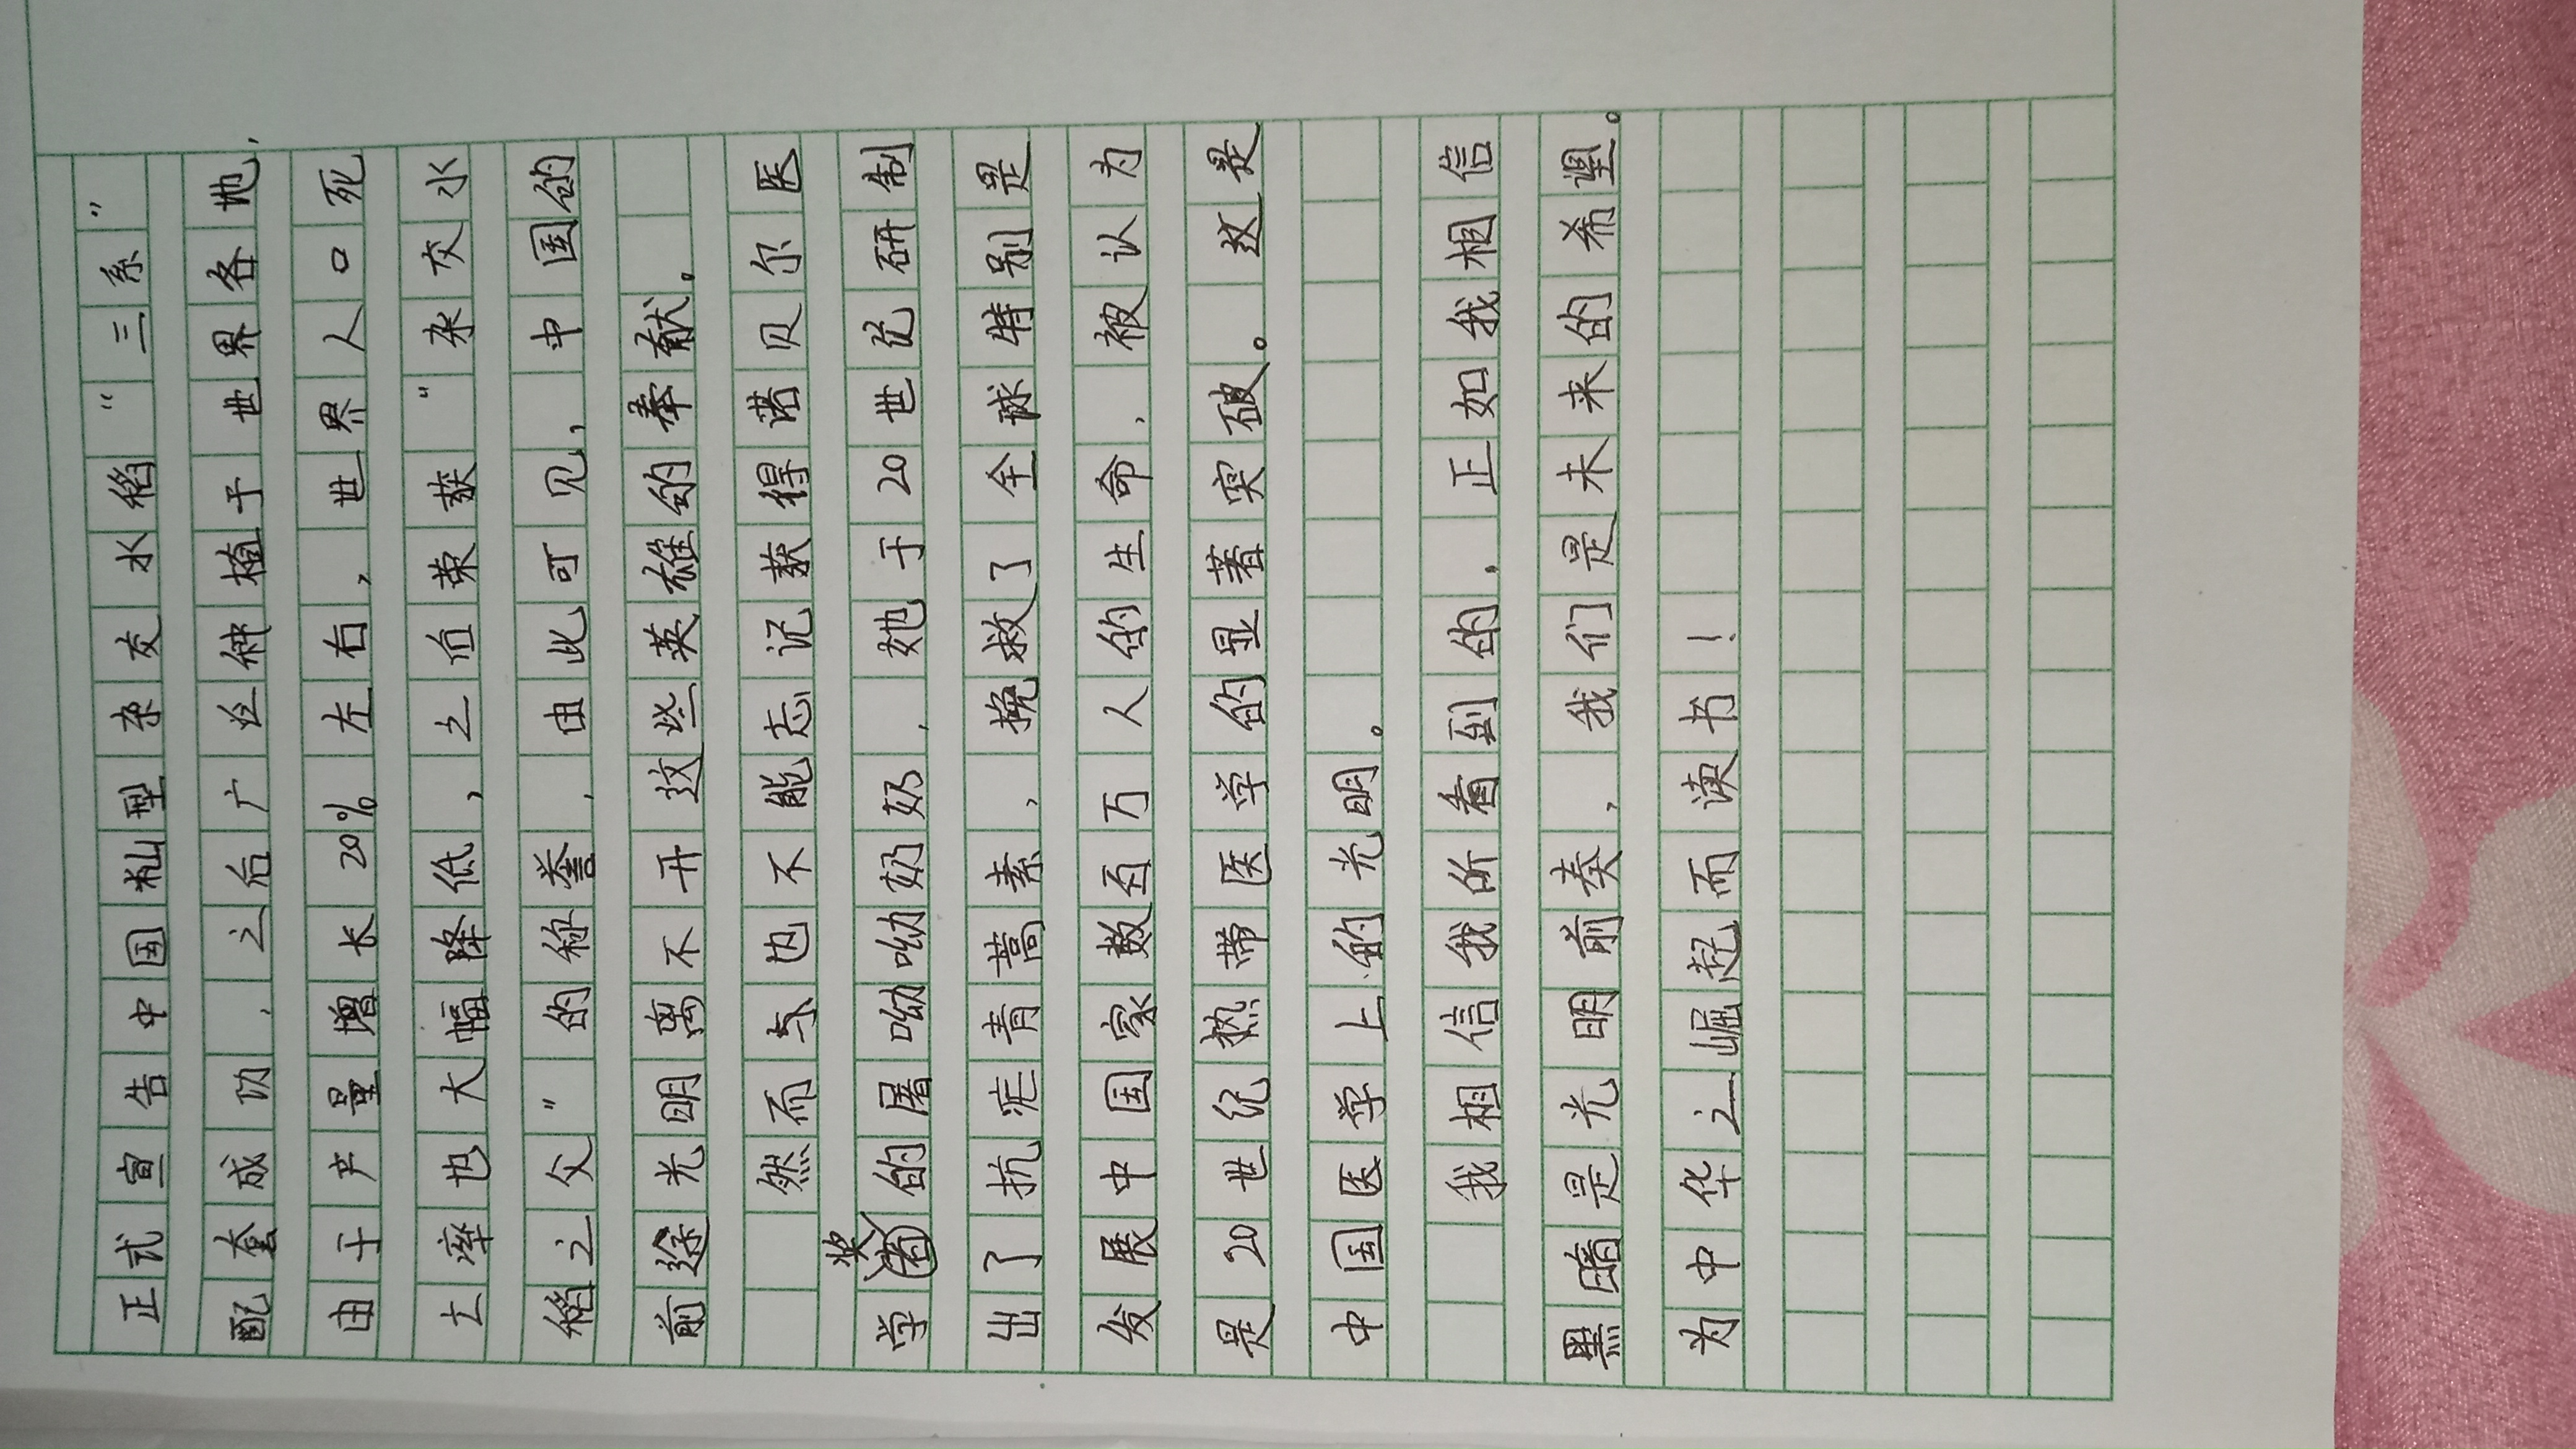 正式宣告中国籼型杂交水稻“三系”
配套成功，之后广泛种植于世界各地，
由于产量增长20%左右，世界人口死
亡率也大幅降低，之后荣获“杂交水
稻之父”的称誉，由此可见，中国的
前途光明离不开这些英雄的奉献。
然而与也不能忘记获得诺贝尔医
学奖的屠呦呦奶奶，她于20世纪研制
出了抗茫青蒿素，挽救了全球特别是
发展中国家数百万人的生命，被认为
是20世纪热带医学的显著突破。这是
中国医学上的光明。
我相信我所看到的，正如我相信
黑暗是光明前奏，我们是未来的希望。
为中华之崛起而读书！